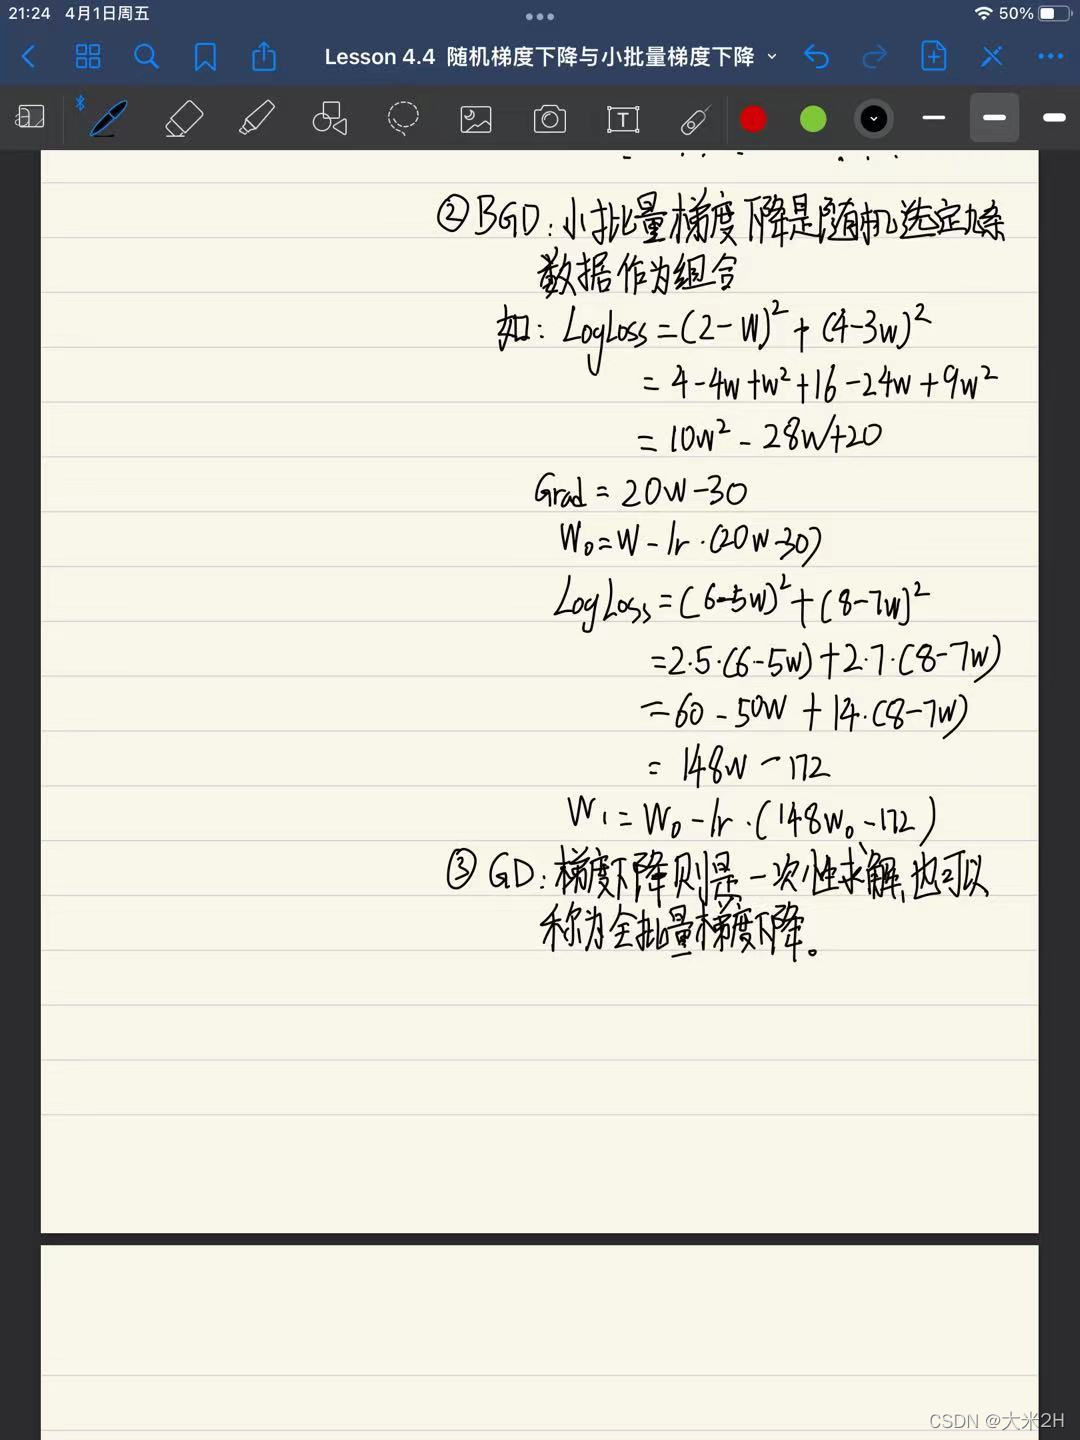 21:24 4月1日周五
50%
Lesson 4.4 随机梯度下降与小批量梯度下降
T
②BGD:小批量梯度下降是随机选定几条
数据作为组合
如: LogLoss=(2-W)²+(4-3w)²
=4-4w+w²+16-24w+9w²
=10w²-28w+20
Grad=20w-30
W₀=W-lr·(20w-30)
LogLoss=(6-5w)²+(8-7w)²
=2·5·(6-5w)+2·7·(8-7w)
=60-50w+14·(8-7w)
=148w-172
W₁=W₀-lr·(148w₀-172)
③GD:梯度下降则是一次性求解,也可以
称为全批量梯度下降。
CSDN @大米2H